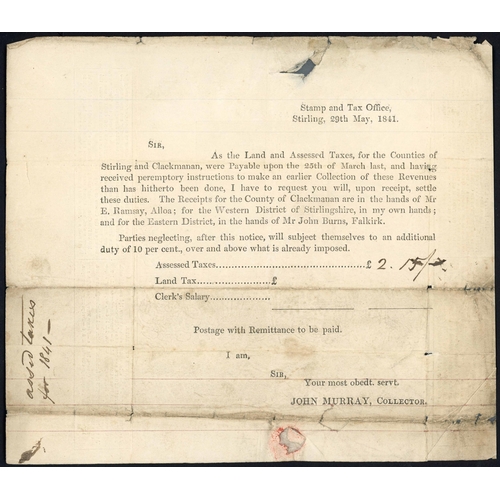 Stamp and Tax Office,
Stirling, 29th May, 1841.
SIR,
As the Land and Assessed Taxes, for the Counties of
Stirling and Clackmanan, were Payable upon the 25th of March last, and having
received peremptory instructions to make an earlier Collection of these Revenues
than has hitherto been done, I have to request you will, upon receipt, settle
these duties. The Receipts for the County of Clackmanan are in the hands of Mr
E. Ramsay, Alloa; for the Western District of Stirlingshire, in my own hands;
and for the Eastern District, in the hands of Mr John Burns, Falkirk.
Parties neglecting, after this notice, will subject themselves to an additional
duty of 10 per cent., over and above what is already imposed.
Assessed Taxes......................................................£ 2. 15/
Land Tax..........................£
Clerk's Salary......................
Postage with Remittance to be paid.
I am,
SIR,
Your most obedt. servt.
JOHN MURRAY, COLLECTOR.
assed taxes
for 1841 —